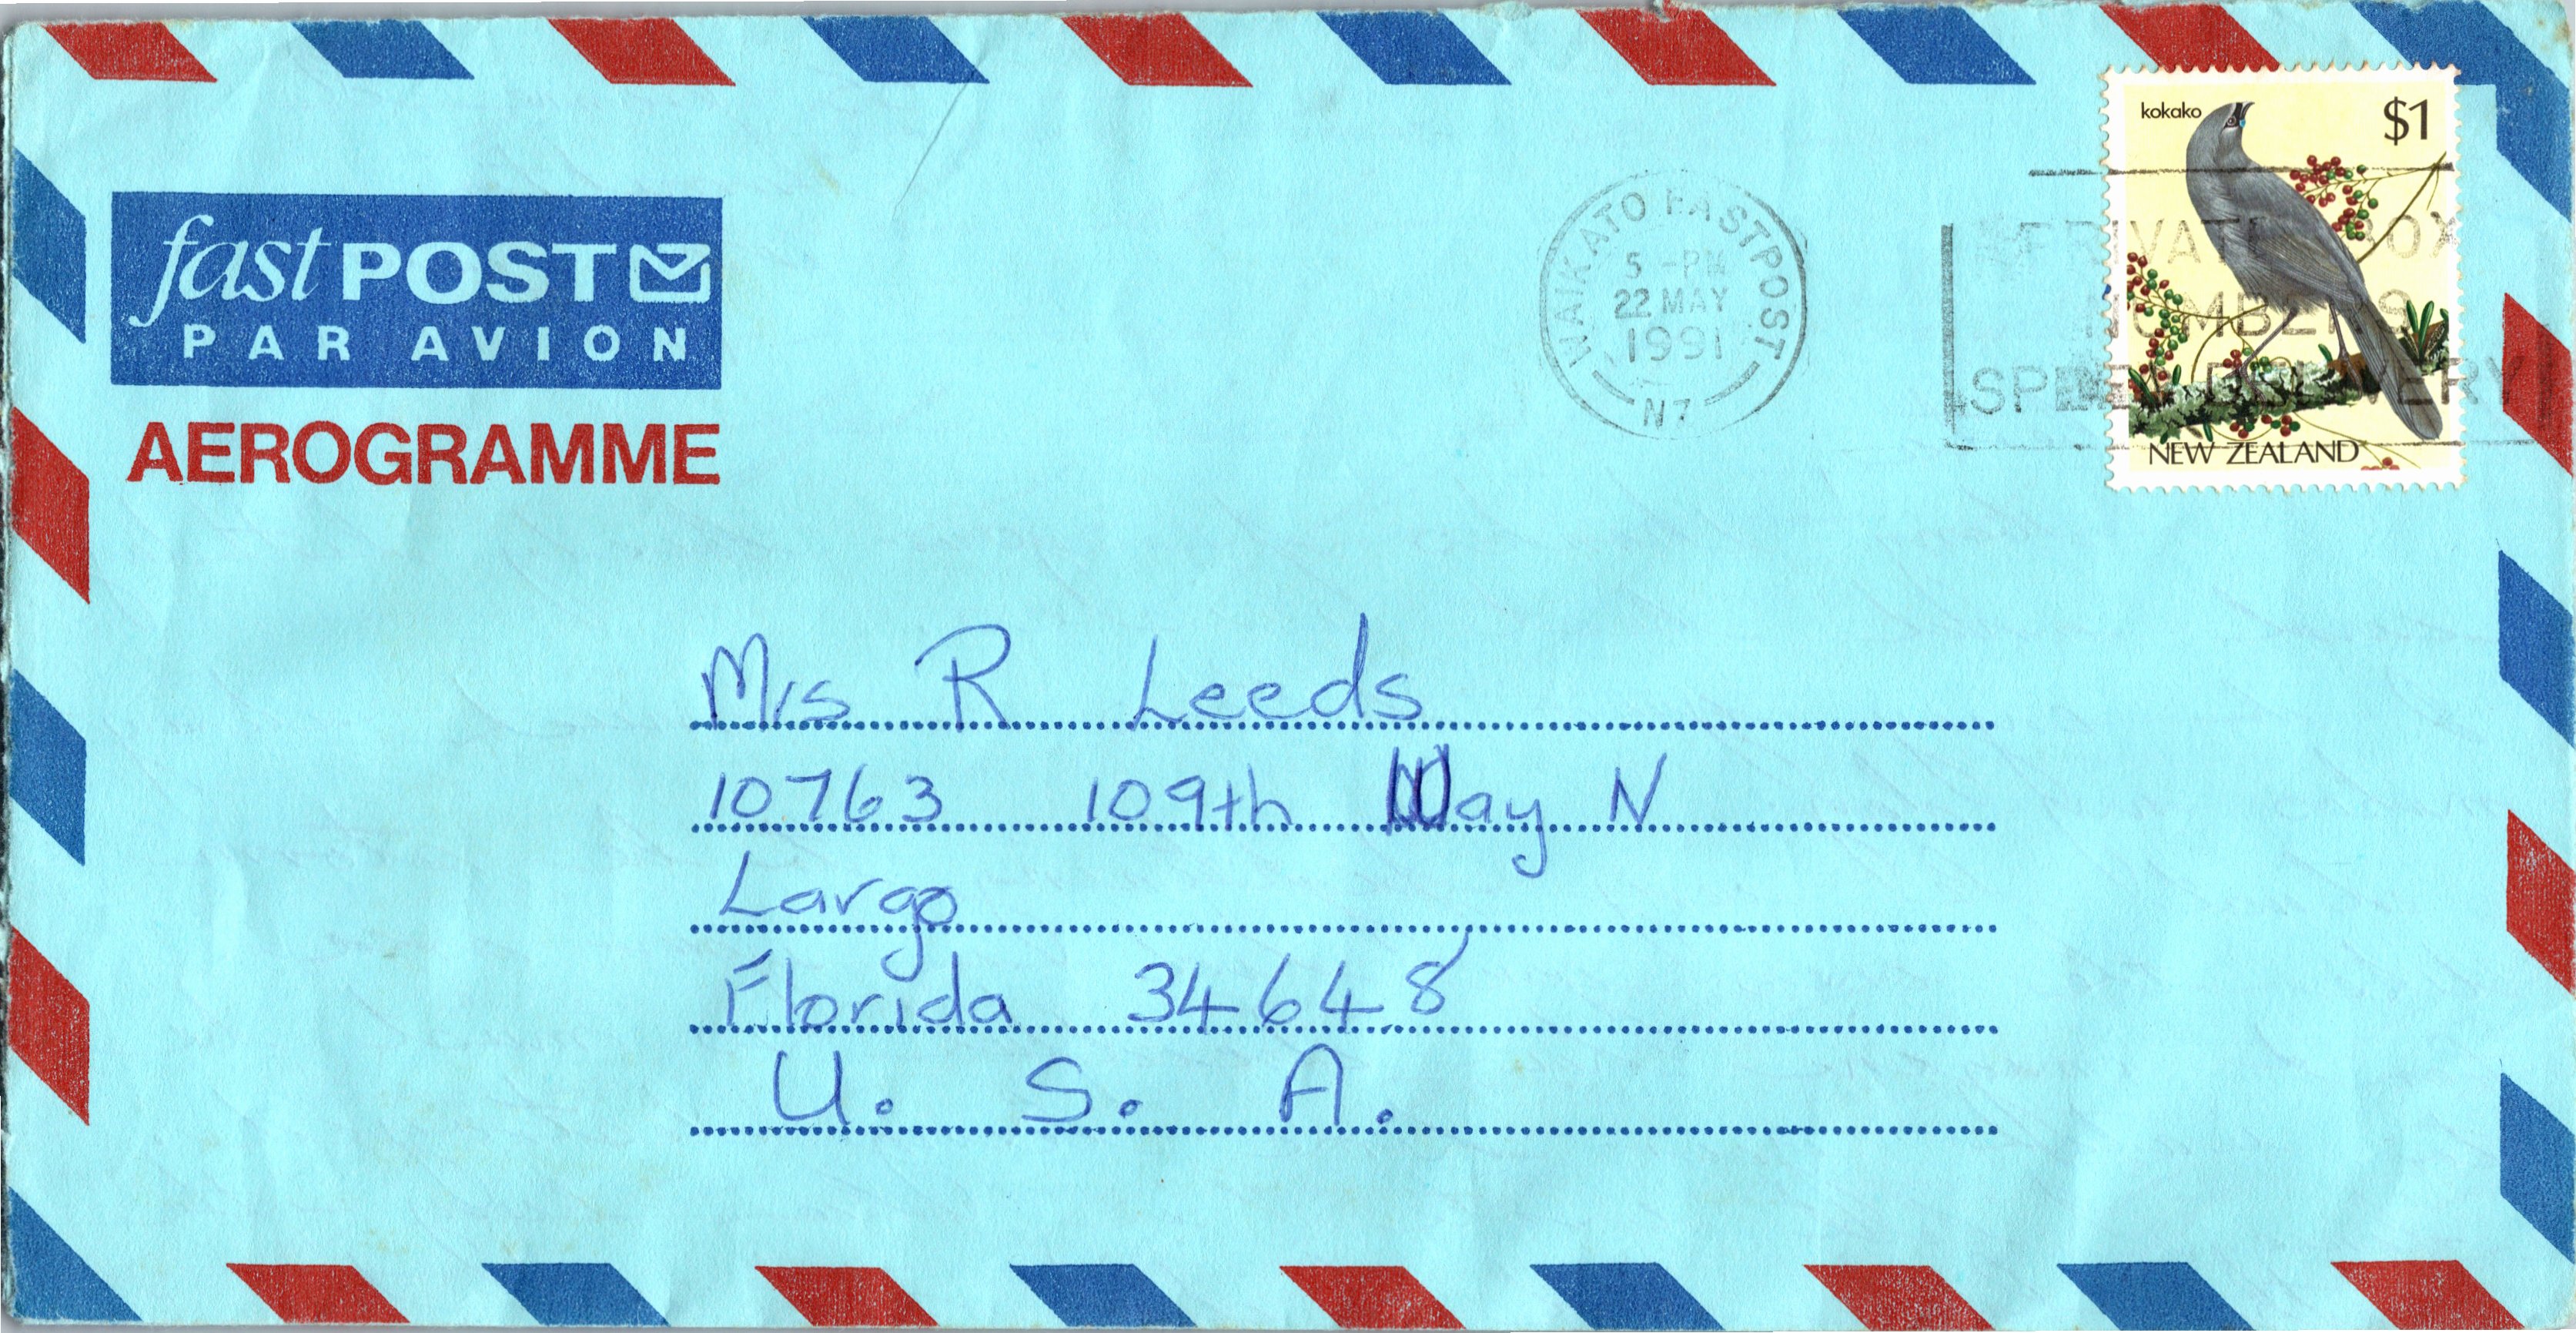 fastPOST
PAR AVION
AEROGRAMME
WAIKATO FASTPOST
5 -PM
22 MAY
1991
NZ
kokako
$1
PRIVATE BOX
NUMBER
SPEED DELIVERY
NEW ZEALAND
Mrs R Leeds
10763 109th Way N
Largo
Florida 34648
U. S. A.